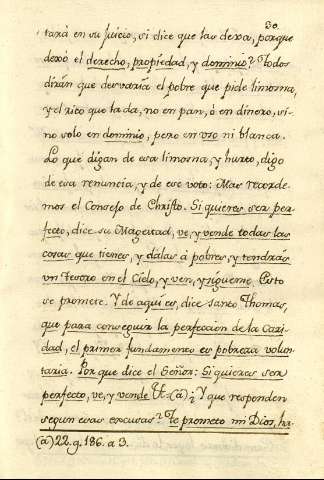 30.
tará en su juicio, si dice que las dexa, porque
dexó el derecho, propiedad, y dominio? Todos
dirán que desvaría el pobre que pide limosna,
y el rico que la da, no en pan, ó en dinero, si-
no solo en dominio, pero en uso ni blanca.
Lo que digan de esa limosna, y hurto, digo
de esa renuncia, y de ese voto: Mas recorde-
mos el Consejo de Christo. Si quieres ser per-
fecto, dice su Magestad, ve, y vende todas las
cosas que tienes, y dálas á pobres, y tendrás
un Tesoro en el Cielo, y ven, y sígueme. Esto
se promete. Y de aquí es, dice santo Thomas,
que para conseguir la perfeccion de la Cari-
dad, el primer fundamento es pobreza volun-
taria. Por que dice el Señor: Si quieres ser
perfecto, ve, y vende &. (a) ¿Y que responden
segun esas excusas? Te prometo mi Dios, ha-
(a) 22. q. 186. a 3.